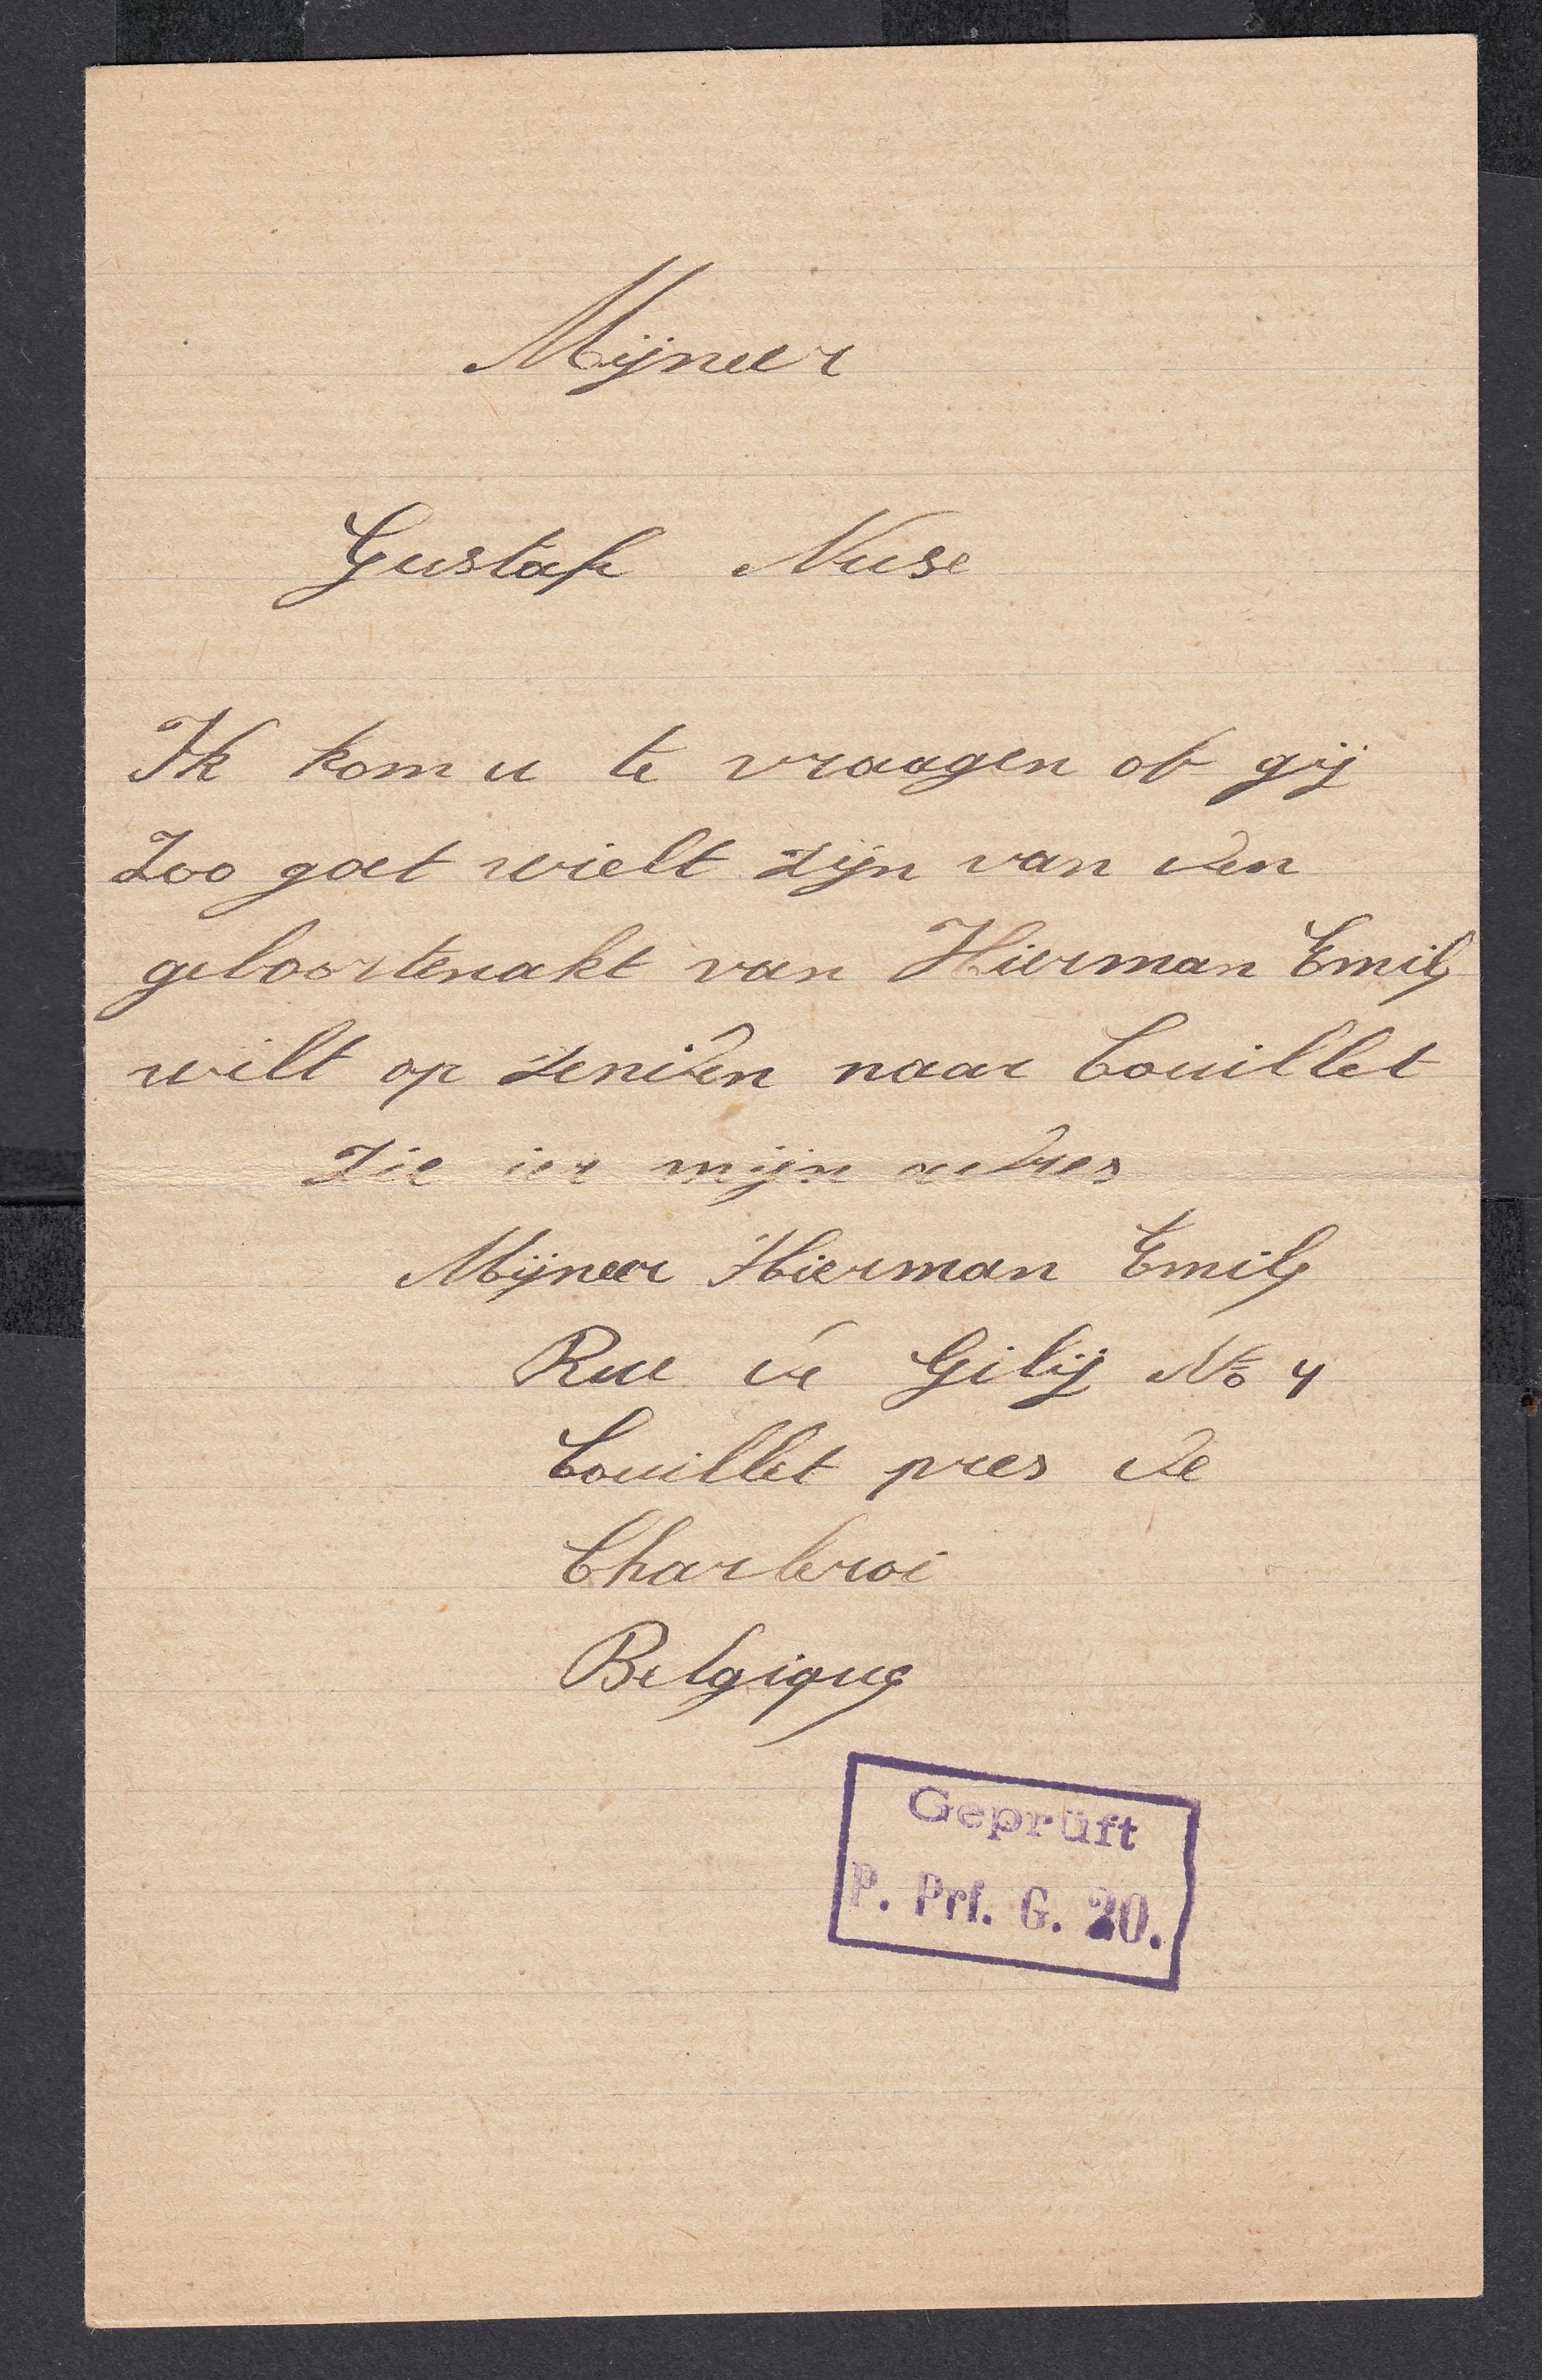 Mijneer
Gustaf Nuse
Ik kom u te vraagen of gij
Zoo goet wielt zijn van den
geboortenakt van Hierman Emile
wilt op zenden naar Couillet
Zie ier mijn adres
Mijneer Hierman Emile
Rue de Gilij No 4
Couillet pres de
Charleroi
Belgique
Geprüft
P. Prf. G. 20.